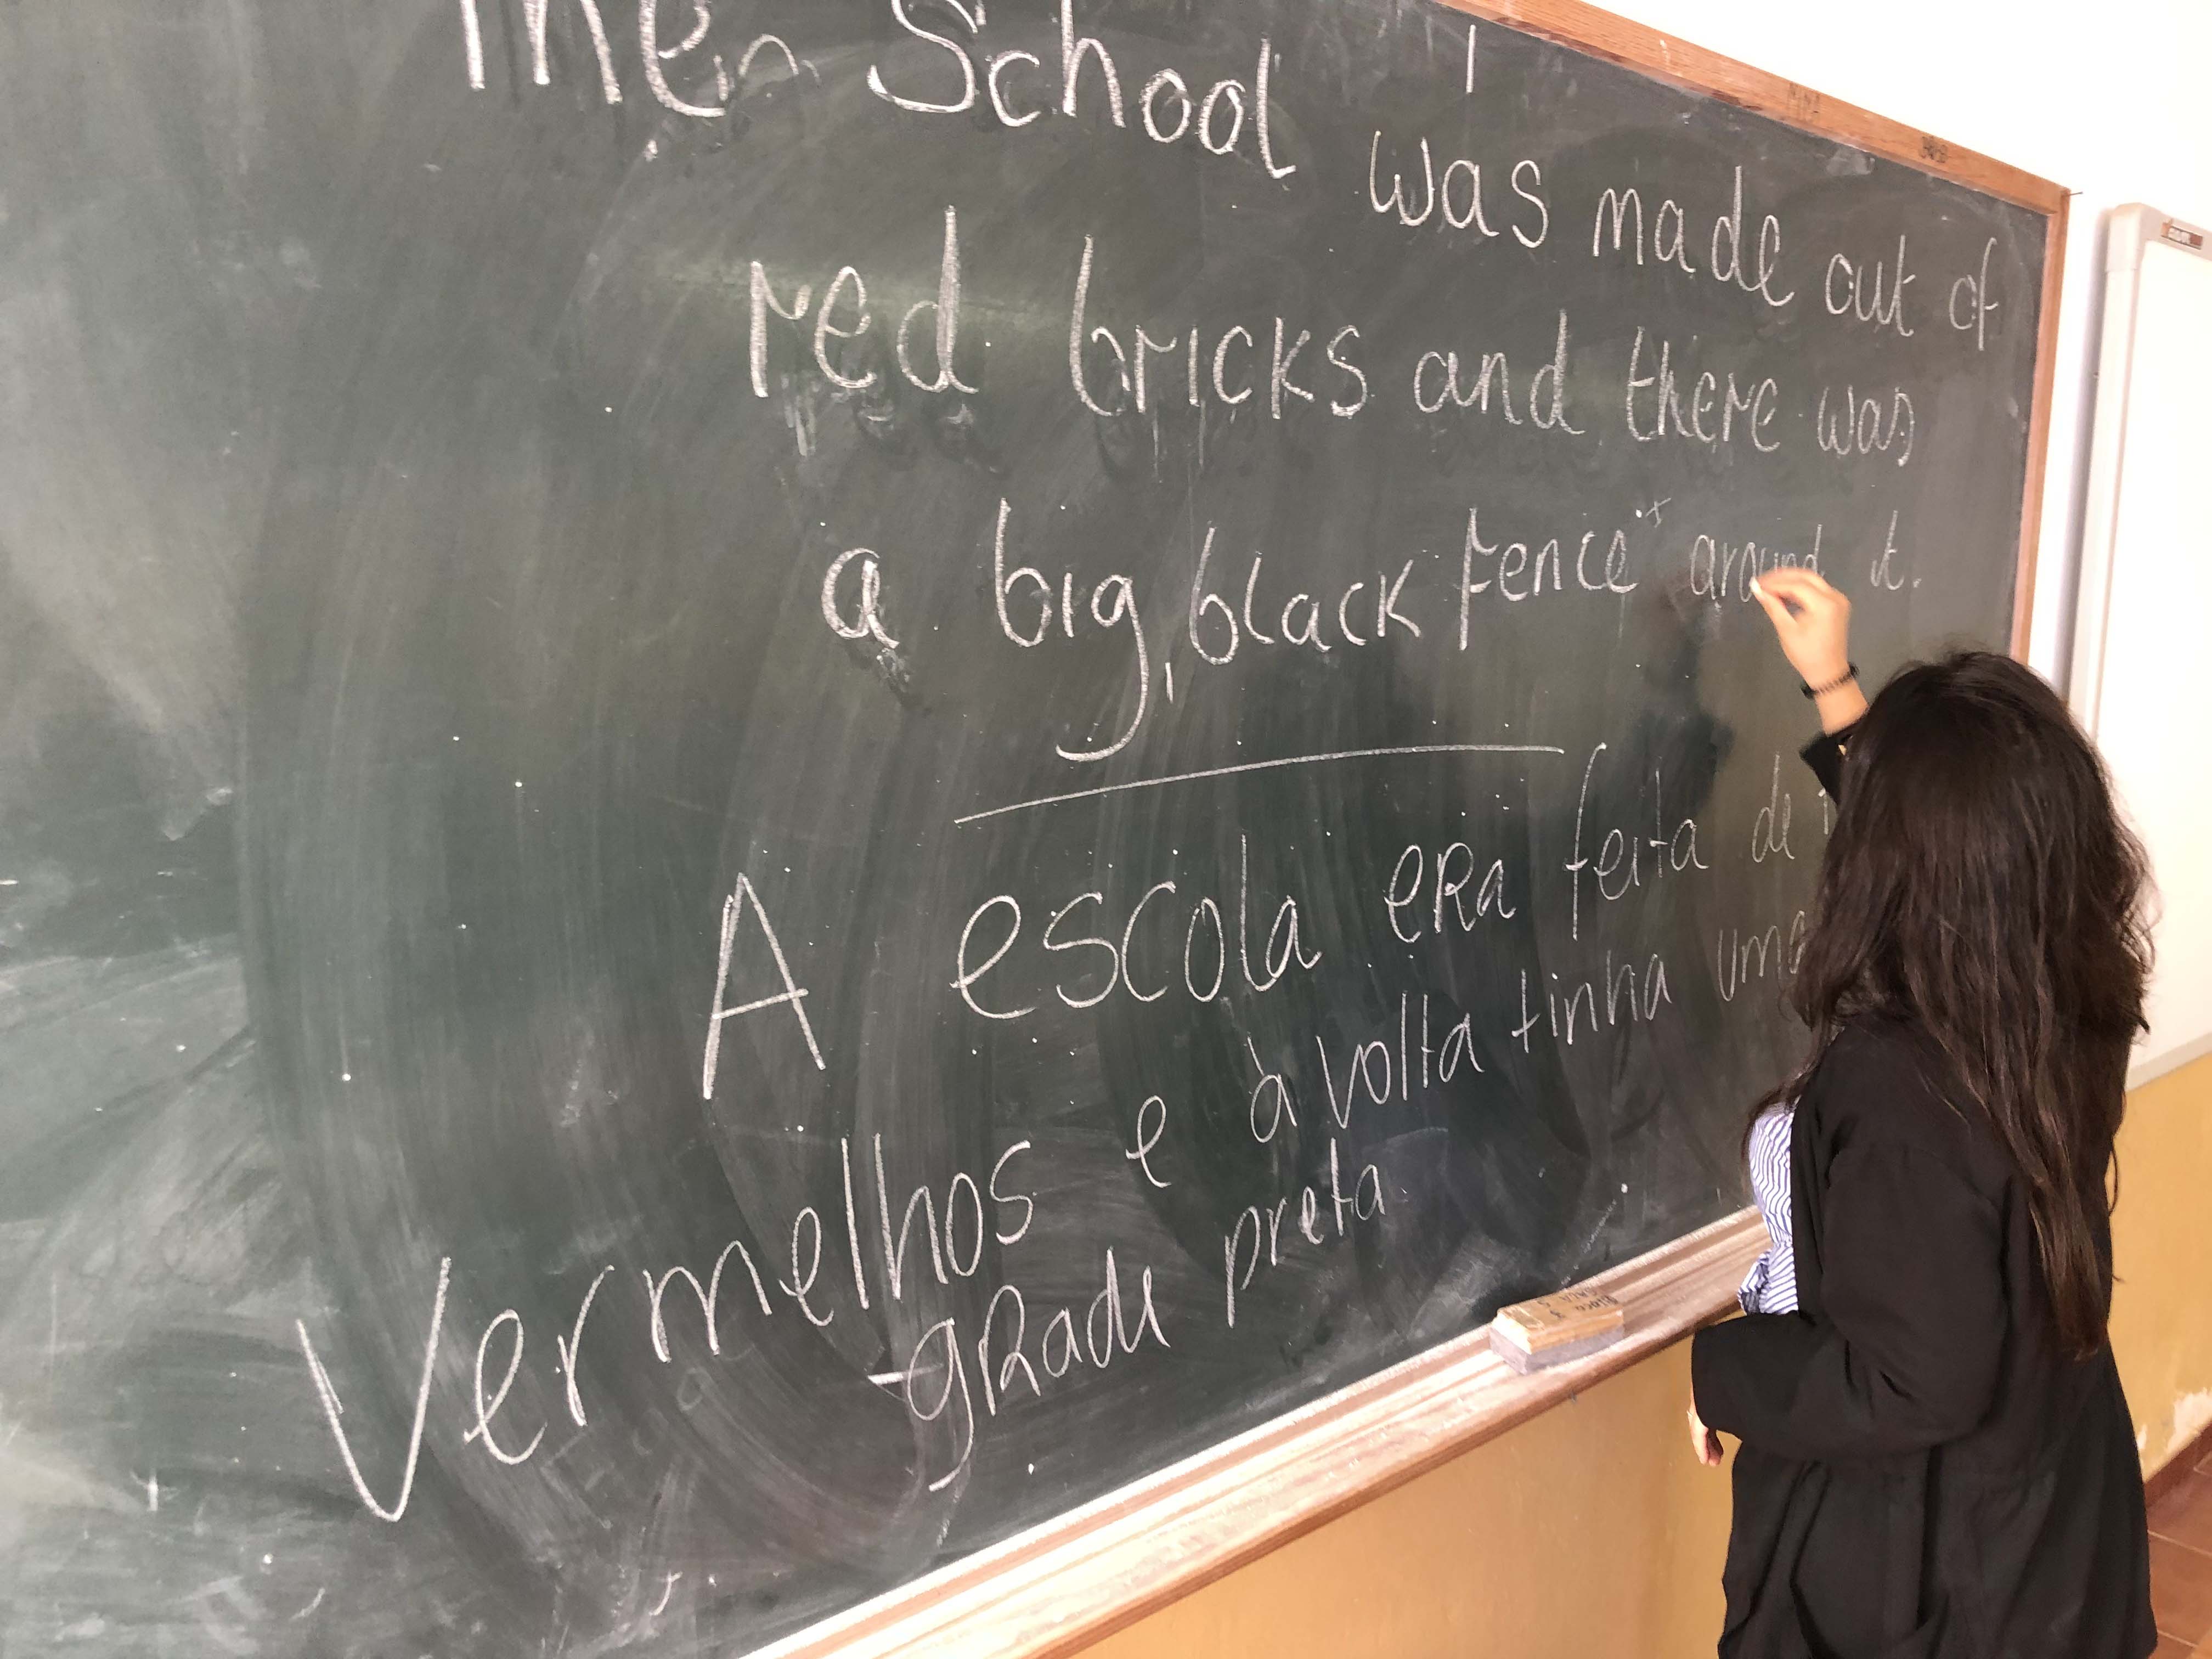 The School was made out of
red bricks and there was
a big, black fence around it.
A escola era feita de
vermelhos e à volta tinha uma
grade preta